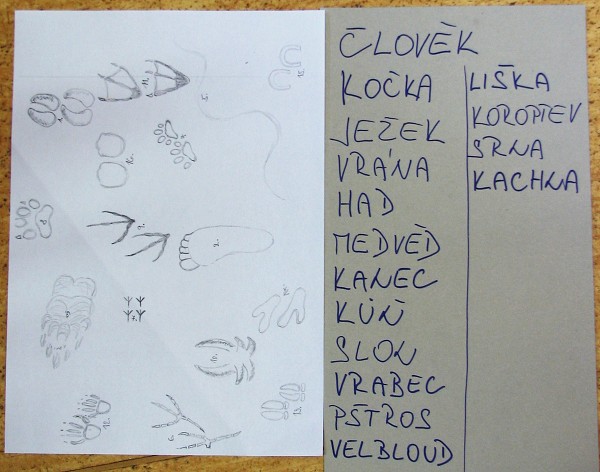 ČLOVĚK
KOČKA
JEŽEK
VRÁNA
HAD
MEDVĚD
KANEC
KŮŇ
SLON
VRABEC
PŠTROS
VELBLOUD
LIŠKA
KOROPTEV
SRNA
KACHNA